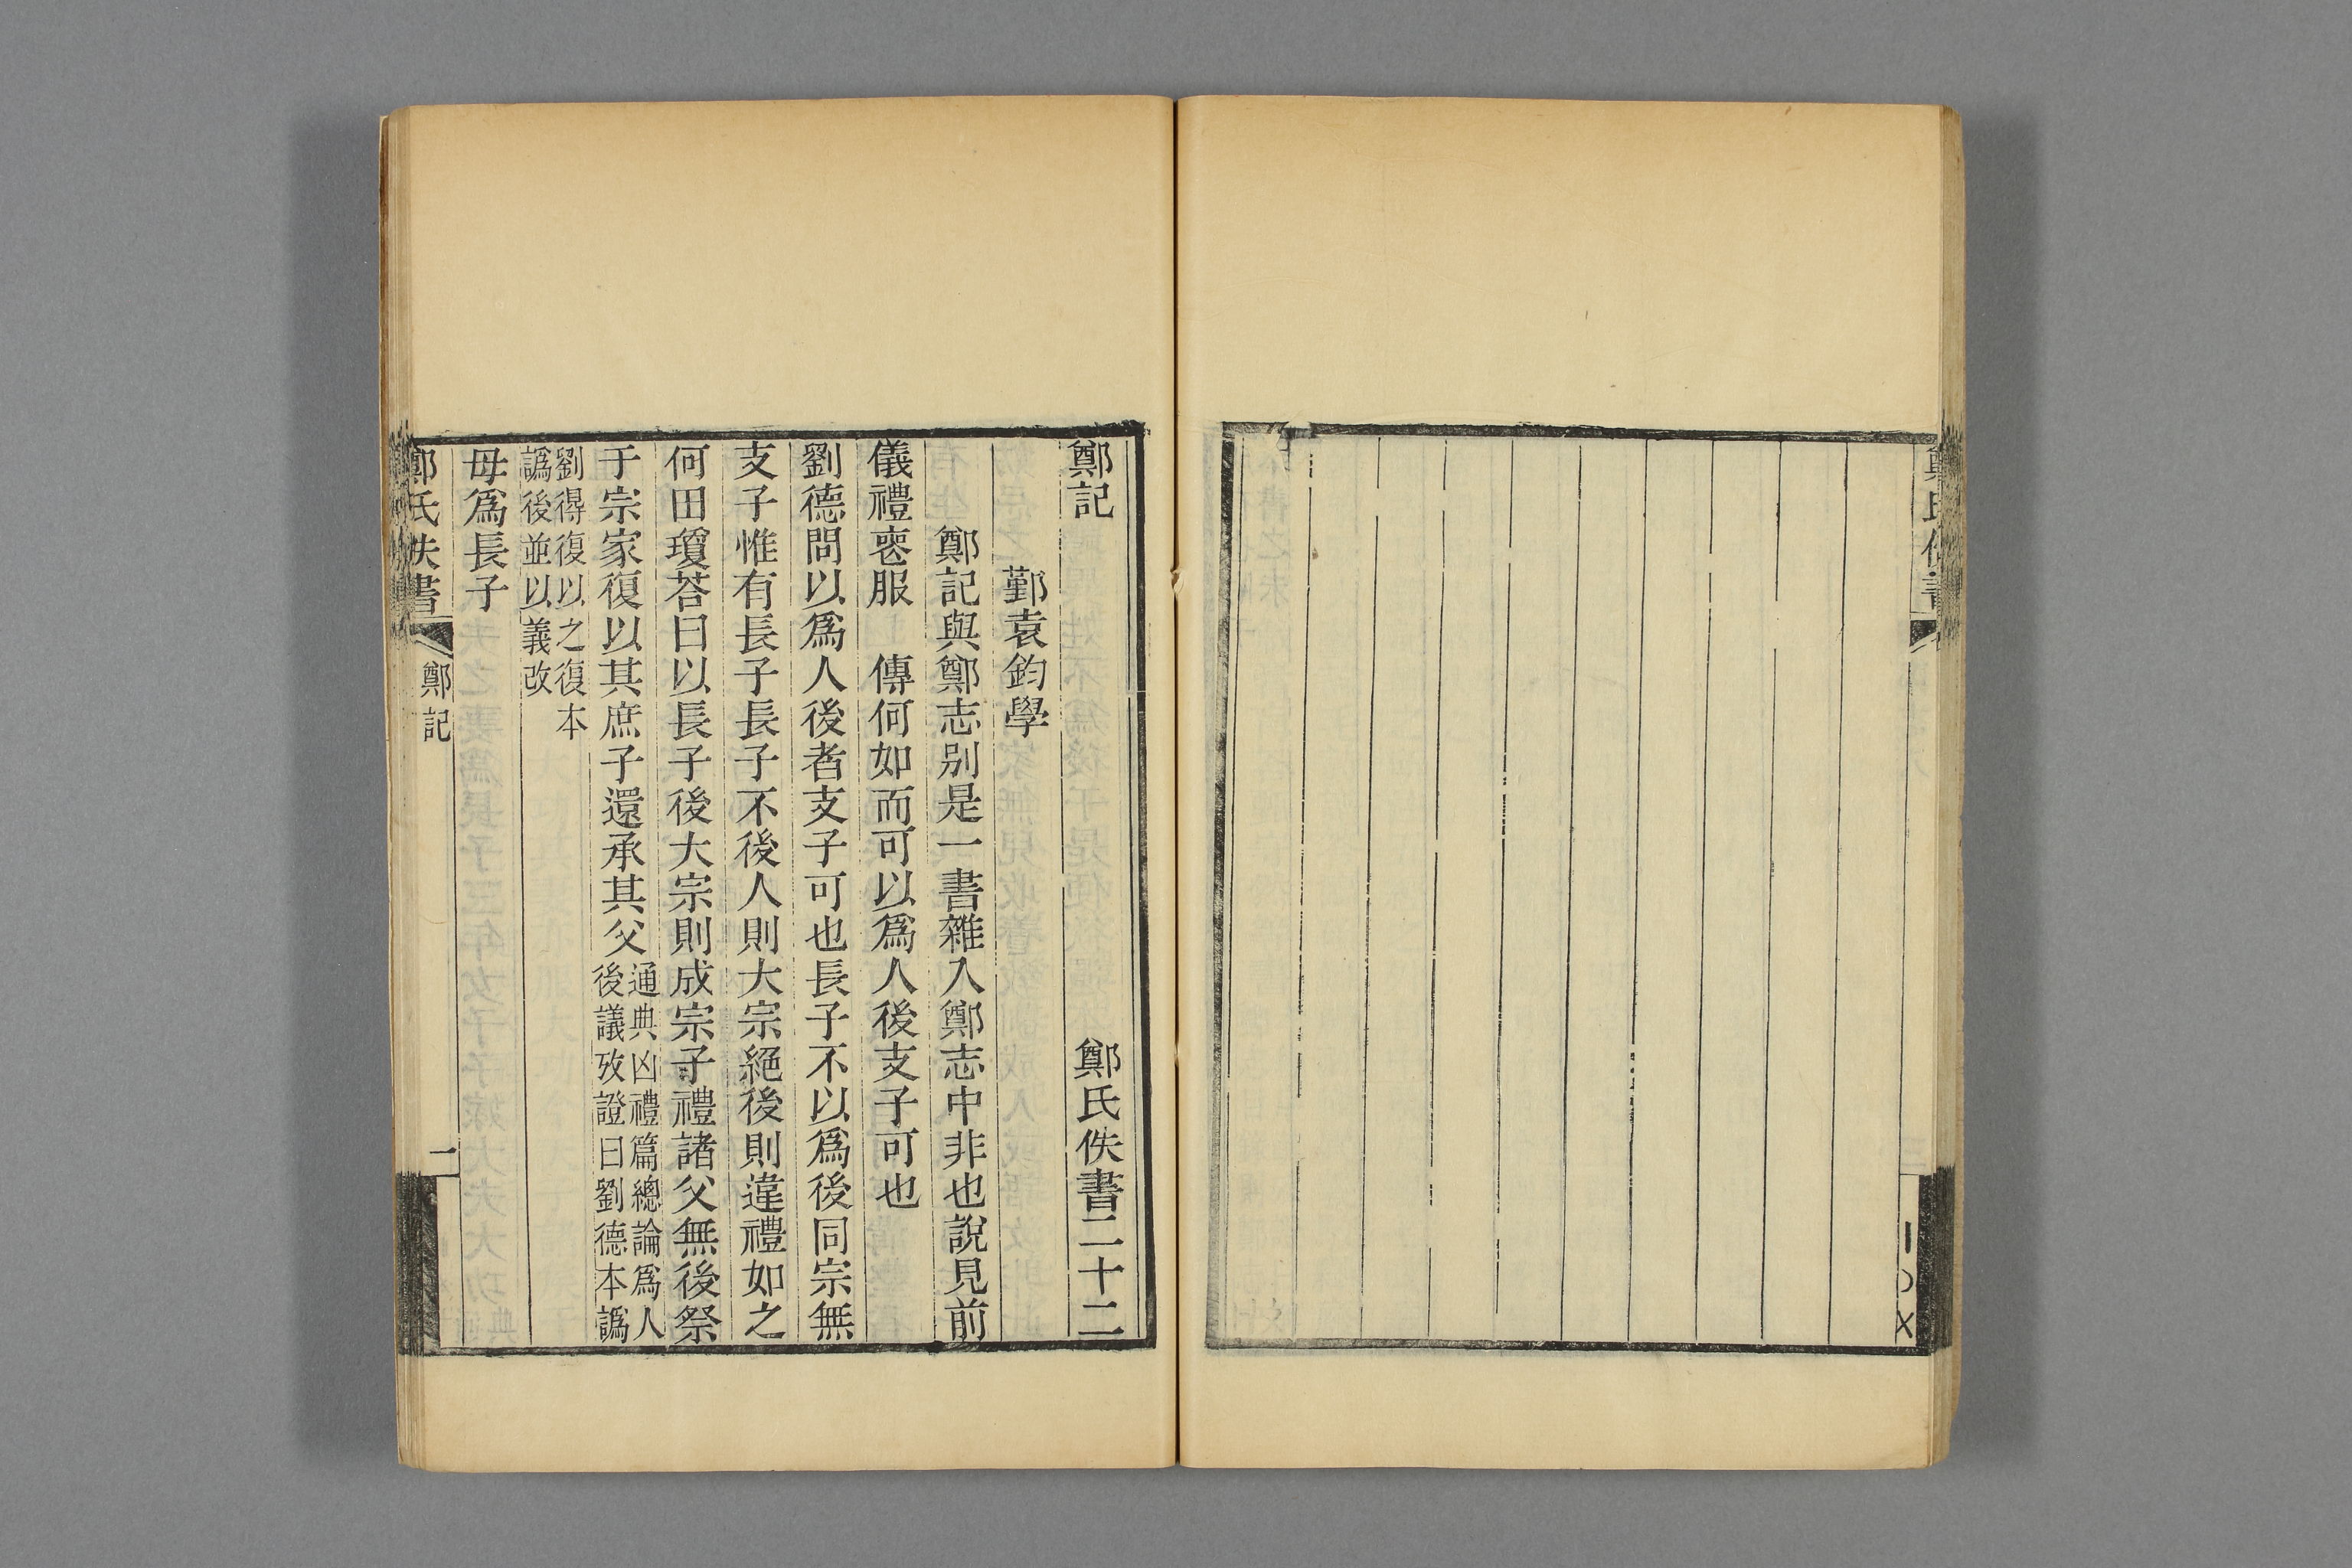 鄭記　鄭氏佚書二十二
鄞袁鈞學
鄭記與鄭志別是一書雜入鄭志中非也說見前
儀禮喪服　傳何如而可以爲人後支子可也
劉德問以爲人後者支子可也長子不以爲後同宗無
支子惟有長子長子不後人則大宗絕後則違禮如之
何田瓊荅曰以長子後大宗則成宗子禮諸父無後祭
于宗家復以其庶子還承其父
通典凶禮篇總論爲人
後議攷證曰劉德本譌
劉得復以之復本
譌後並以義改
母爲長子
鄭氏佚書　鄭記　一